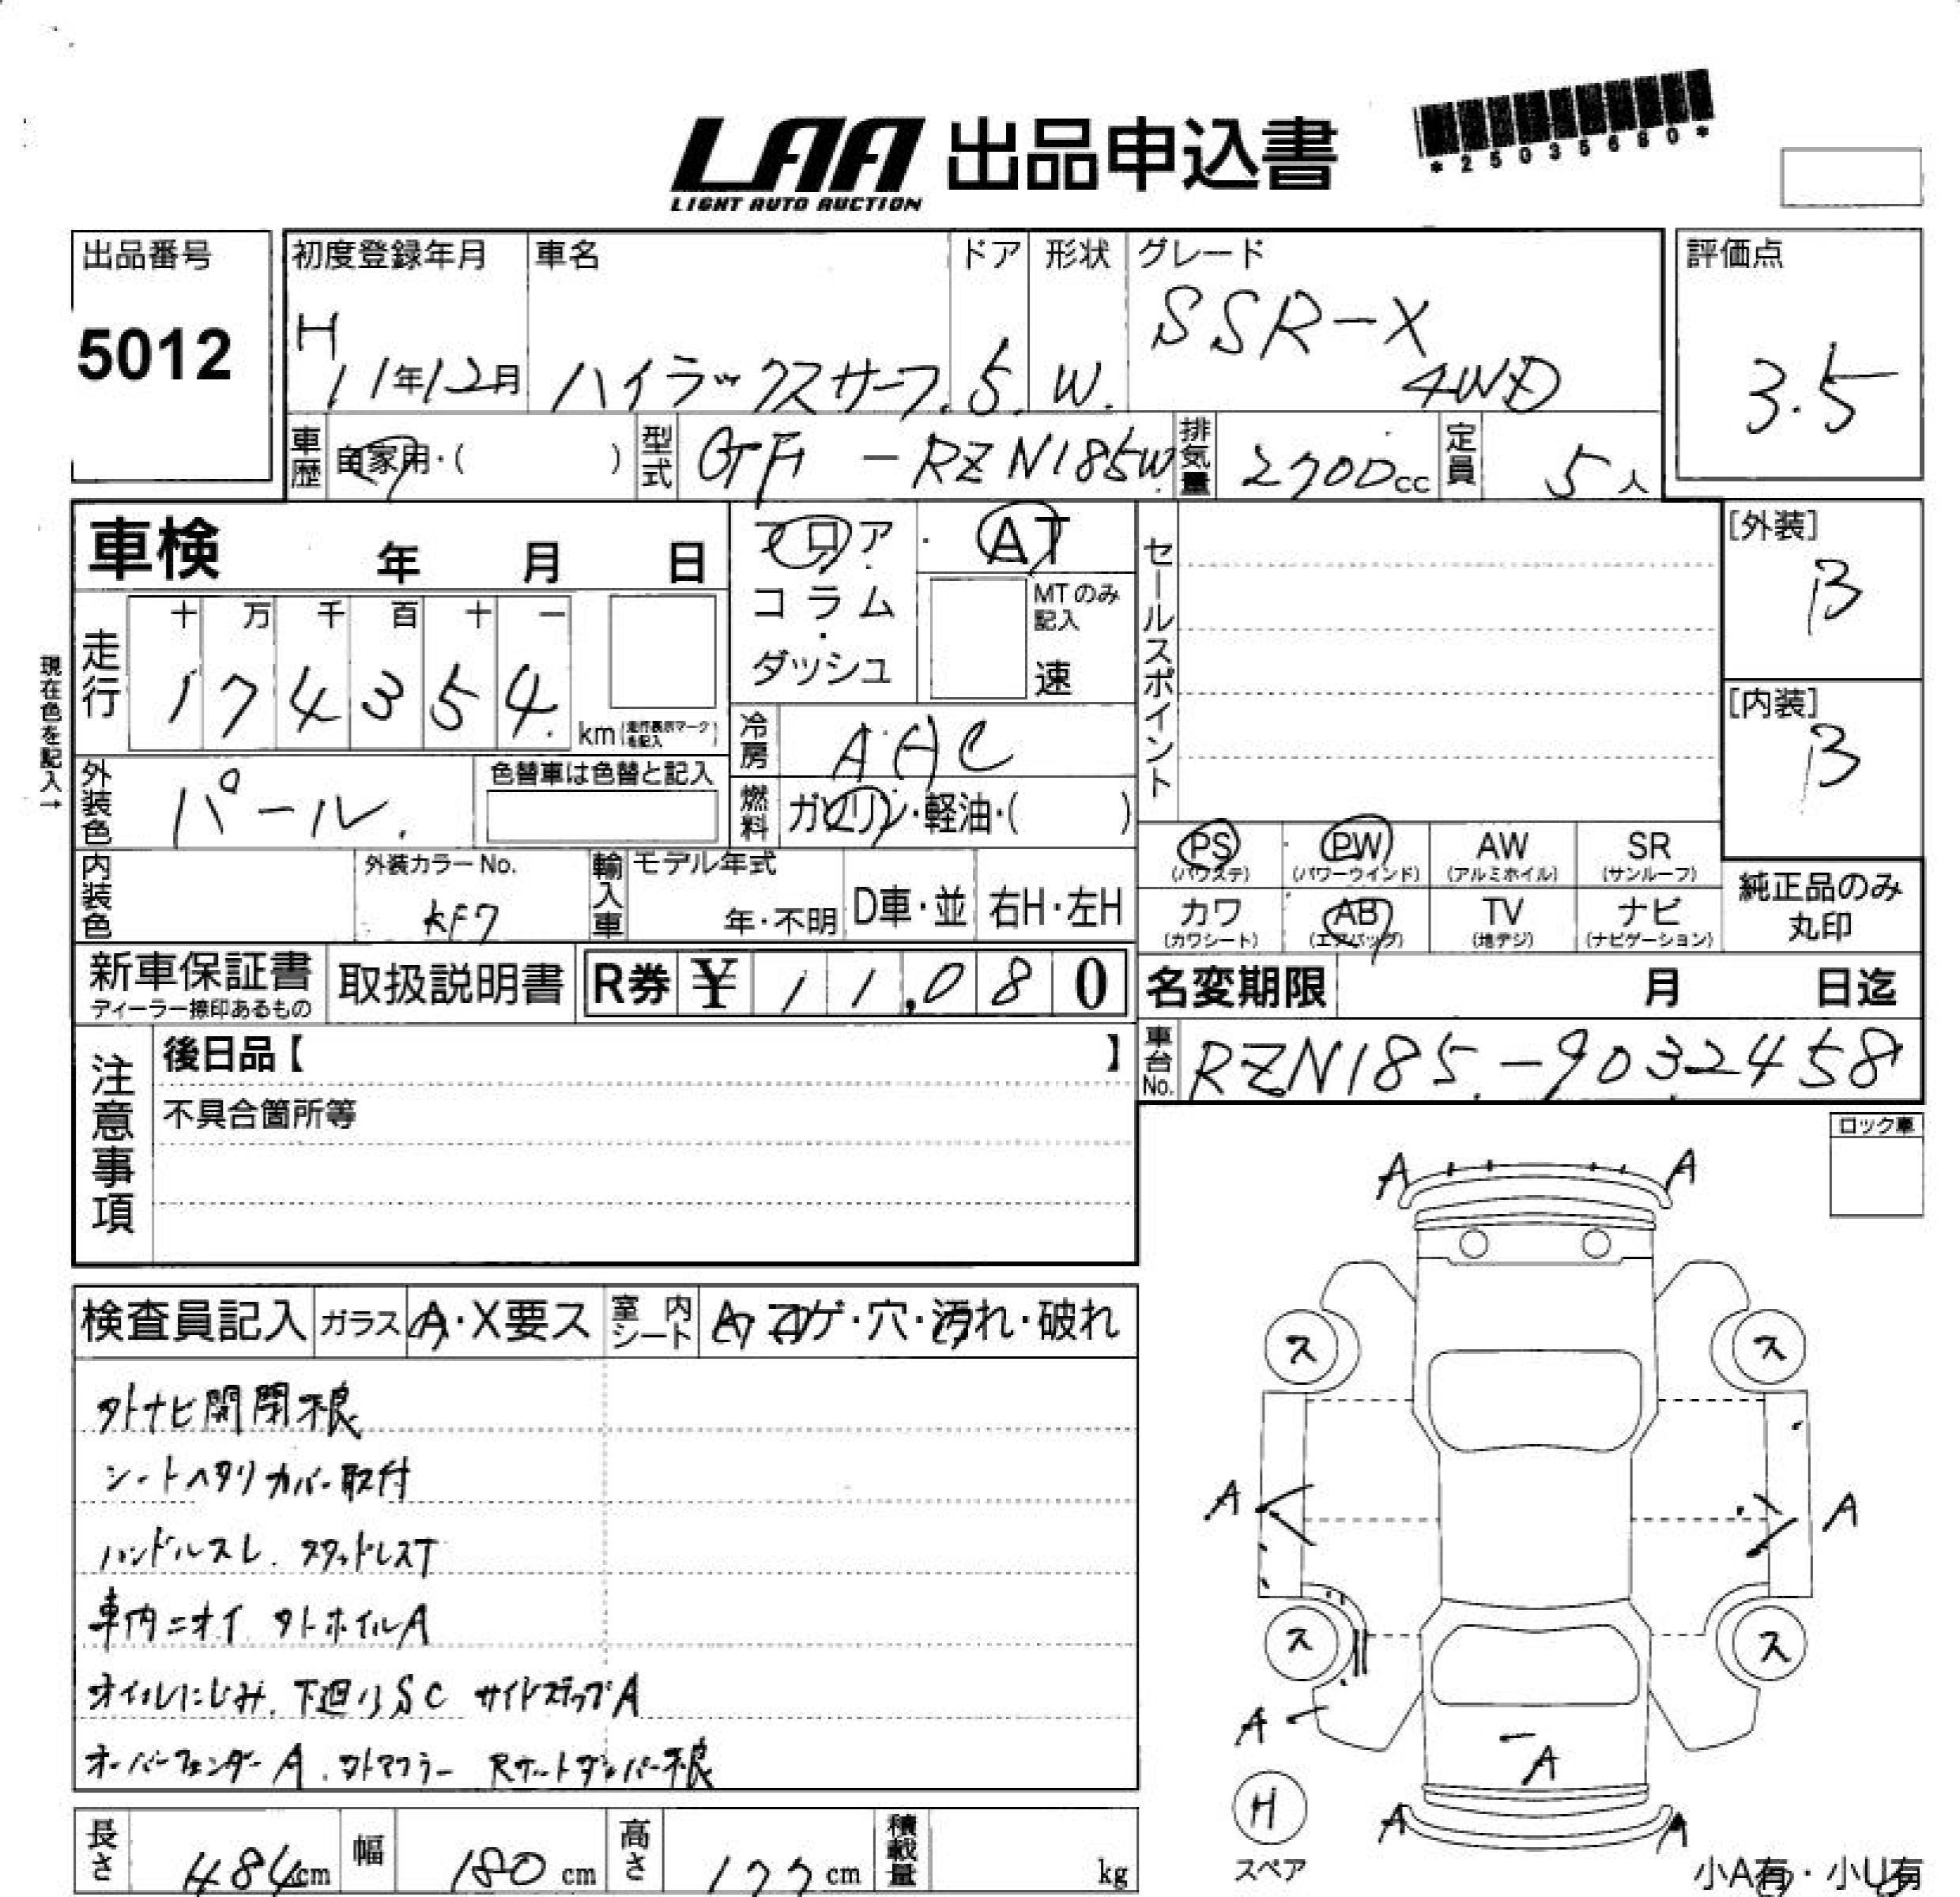 LAA 出品申込書
LIGHT AUTO AUCTION
*25035680*
出品番号
5012
初度登録年月 車名 ドア 形状 グレード
H 11年12月 ハイラックスサーフ. 5. W. SSR-X 4WD
評価点
3.5
車歴 自家用・( ) 型式 GF - RZN185W. 排気量 2700cc 定員 5人
車検 年 月 日
フロア・コラム・ダッシュ
AT
MTのみ記入
速
セールスポイント
[外装]
B
[内装]
B
現在色を記入→
走行 十 万 千 百 十 一
174354. km (走行表示マークを記入)
冷房 AAC
外装色 パール. 色替車は色替と記入
燃料 ガソリン・軽油・( )
内装色 外装カラーNo. KF7
輸入車 モデル年式 年・不明 D車・並 右H・左H
PS (パワステ) PW (パワーウインド) AW (アルミホイル) SR (サンルーフ)
カワ (カワシート) AB (エアバッグ) TV (地デジ) ナビ (ナビゲーション)
純正品のみ丸印
新車保証書 ディーラー捺印あるもの 取扱説明書 R券 ¥ 11,080
名変期限 月 日迄
車台No. RZN185.-9032458
注意事項
後日品【 】
不具合箇所等
ロック車
検査員記入 ガラス A・X要ス 室内シート A コゲ・穴・汚れ・破れ
外ナビ開閉不良
シートヘタリ カバー取付
ハンドルスレ. スタッドレスT
車内ニオイ 外ホイルA
オイルにじみ. 下廻りSC サイドステップA
オーバーフェンダーA. 外マフラー Rゲートダンパー不良
A A
ス ス
A A
ス ス
A
A
H
スペア
A A
小A有・小U有
長さ 484cm 幅 180cm 高さ 177cm 積載量 kg